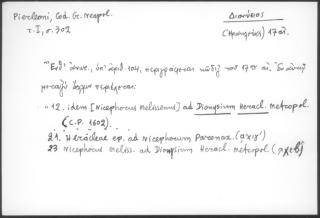 Pierleoni, Cod. Gr. Neapol.
τ. I, σ. 302
Διονύσιος
(Ἡρακλείας) 17 αἰ.
Ἐνθ' ἀνωτ., ὑπ' ἀριθ. 104, περιγράφεται κῶδιξ τοῦ 17ου αἰ. Ἐν αὐτῷ
μεταξὺ ἄλλων περιέχεται:
"12. idem [Nicephorus Melissenus] ad Dionysium Heracl. metropol.
(C.P. 1602).
21. Heracleae ep. ad Nicephorum Paronax. (αχιγ')
23 Nicephorus Meliss. ad Dionysium Heracl. metropol.